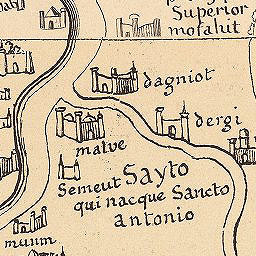 Superior
mofahit
dagniot
dergi
matve
Semeut Sayto
qui nacque Sancto
antonio
munm